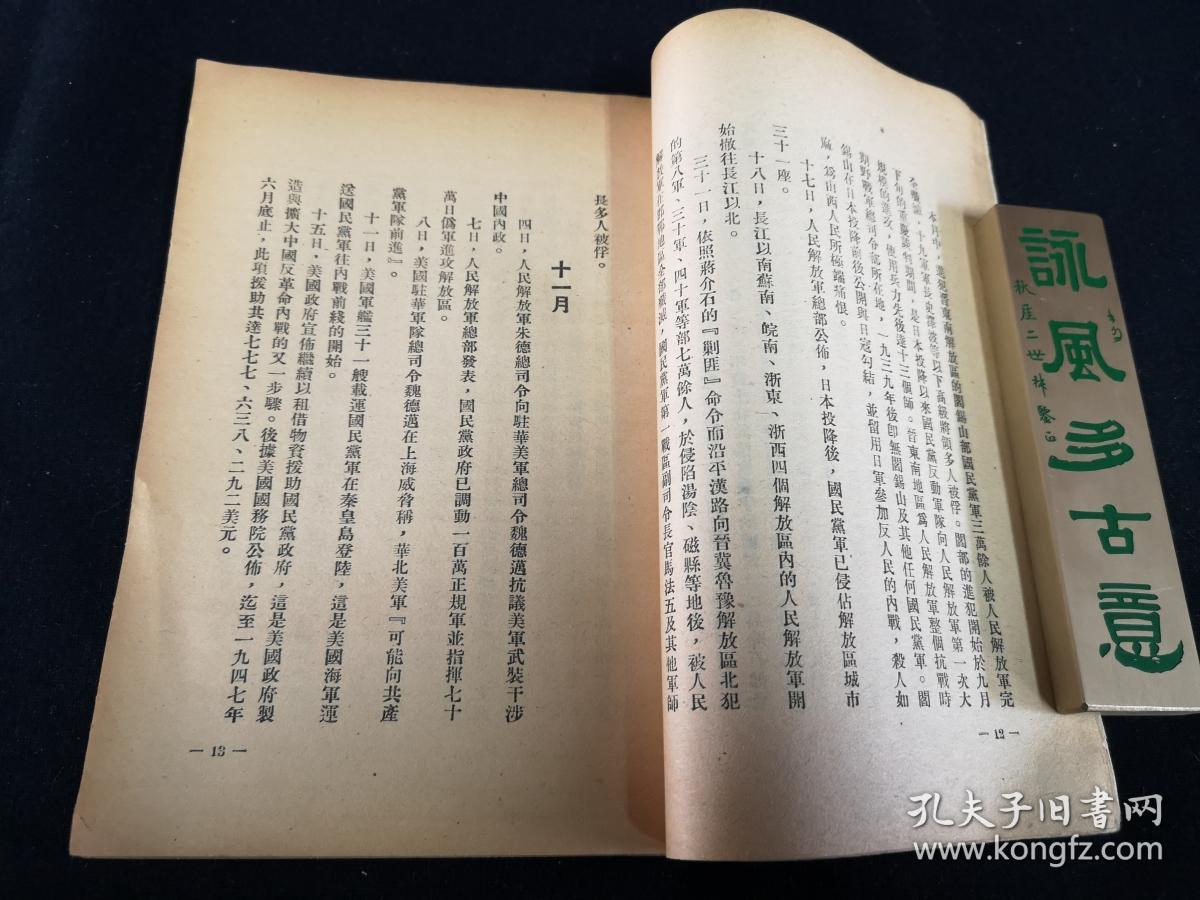 本月中，進犯晉東南解放區的閻錫山部國民黨軍三萬餘人被人民解放軍完
全殲滅，十九軍軍長史澤波等以下高級將領多人被俘。閻部的進犯開始於九月
下旬的重慶談判期間，是日本投降以來國民黨反動軍隊向人民解放軍第一次大
規模的進攻，使用兵力先後達十三個師。晉東南地區爲人民解放軍整個抗戰時
期野戰軍總司令部所在地，一九三九年後卽無閻錫山及其他任何國民黨軍。閻
錫山在日本投降前後公開與日寇勾結，並留用日軍參加反人民的內戰，殺人如
麻，爲山西人民所極端痛恨。
十七日，人民解放軍總部公佈，日本投降後，國民黨軍已侵佔解放區城市
三十一座。
十八日，長江以南蘇南、皖南、浙東、浙西四個解放區內的人民解放軍開
始撤往長江以北。
三十一日，依照蔣介石的『剿匪』命令而沿平漢路向晉冀魯豫解放區北犯
的第八軍、三十軍、四十軍等部七萬餘人，於侵陷湯陰、磁縣等地後，被人民
解放軍在邯鄲地區全部殲滅，國民黨軍第一戰區副司令長官馬法五及其他軍師
— 12 —
長多人被俘。
十一月
四日，人民解放軍朱德總司令向駐華美軍總司令魏德邁抗議美軍武裝干涉
中國內政。
七日，人民解放軍總部發表，國民黨政府已調動一百萬正規軍並指揮七十
萬日僞軍進攻解放區。
八日，美國駐華軍隊總司令魏德邁在上海威脅稱，華北美軍『可能向共產
黨軍隊前進』。
十一日，美國軍艦三十一艘載運國民黨軍在秦皇島登陸，這是美國海軍運
送國民黨軍往內戰前綫的開始。
十五日，美國政府宣佈繼續以租借物資援助國民黨政府，這是美國政府製
造與擴大中國反革命內戰的又一步驟。後據美國國務院公佈，迄至一九四七年
六月底止，此項援助共達七七七、六三八、二九二美元。
— 13 —
詠風多古意
孔夫子旧书网
www.kongfz.com